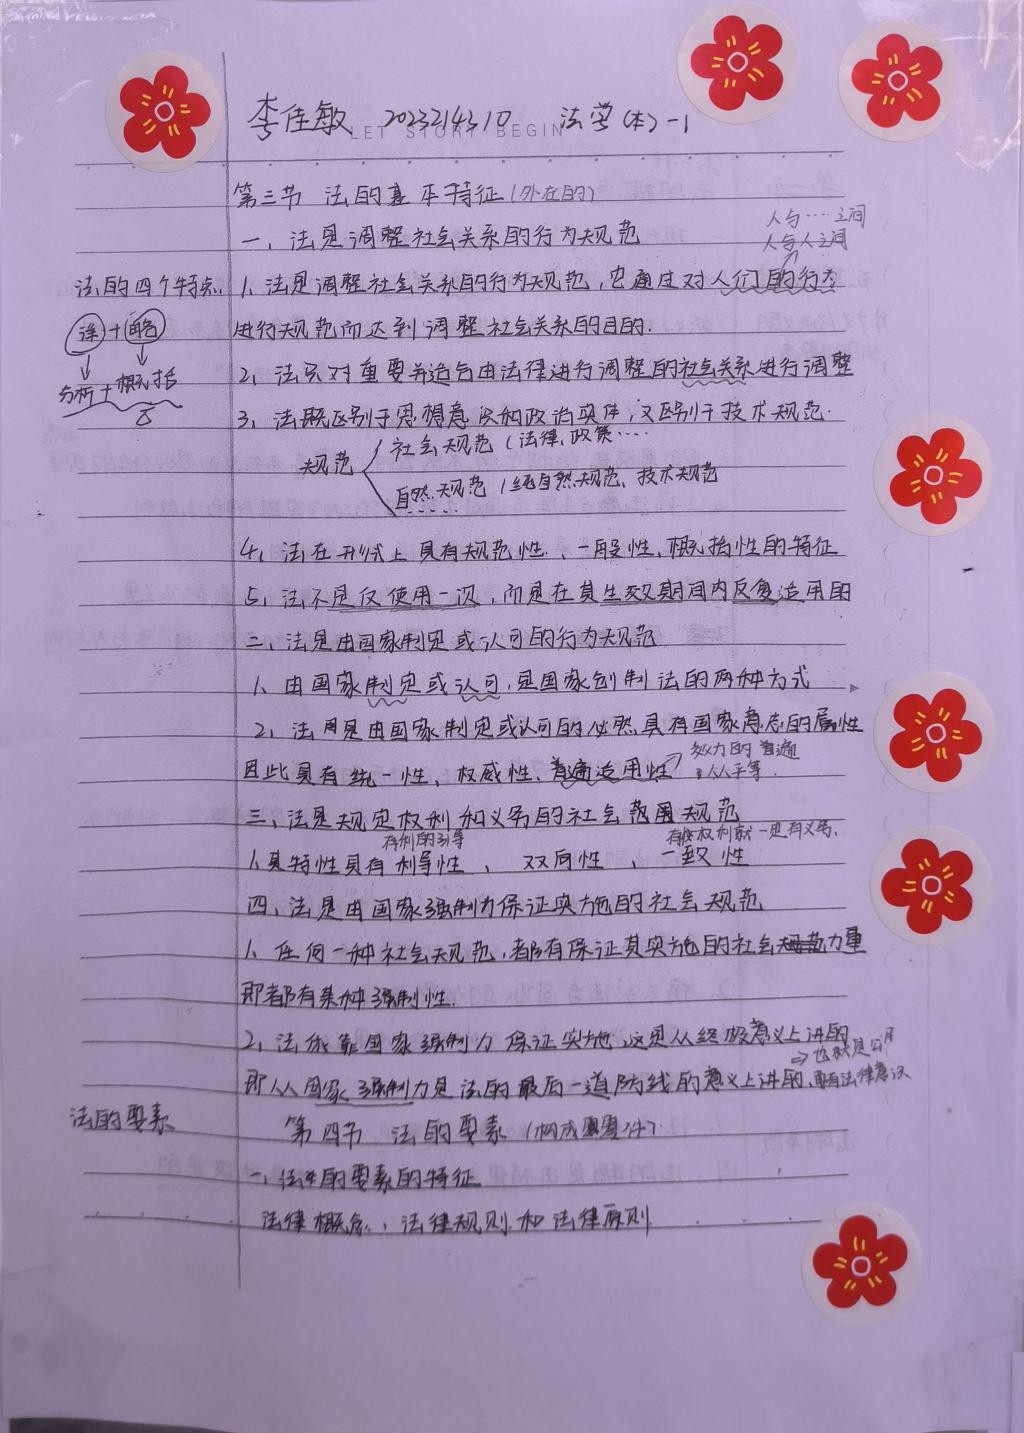 李佳敏 2023214310 法学(本)-1
LET STORY BEGIN
第三节 法的基本特征(外在的)
一、法是调整社会关系的行为规范
人与····之间
人与人之间
法的四个特点
1、法是调整社会关系的行为规范,它通过对人们的行为
进行规范而达到调整社会关系的目的.
详+略
分析+概括
2、法只对重要并适合由法律进行调整的社会关系进行调整
3、法既区别于思想意识和政治实体,又区别于技术规范.
规范
社会规范(法律、政策····
自然规范(纯自然规范、技术规范
4、法在形式上具有规范性、一般性、概括性的特征
5、法不是仅使用一次,而是在其生效期间内反复适用的
二、法是由国家制定或认可的行为规范
1、由国家制定或认可,是国家创制法的两种方式
2、法是由国家制定或认可的必然具有国家意志的属性
因此具有统一性、权威性、普遍适用性
效力的普遍
人人平等.
三、法是规定权利和义务的社会规范
有利的引导
有权利就一定有义务.
1、其特性具有利导性、双向性、一致性
四、法是由国家强制力保证实施的社会规范
1、任何一种社会规范,都有保证其实施的社会力量
即都有某种强制性.
2、法依靠国家强制力保证实施,这是从终极意义上讲的
即从国家强制力是法的最后一道防线的意义上讲的,
要有法律意识
法的要素
第四节 法的要素(构成要件).
一、法的要素的特征
法律概念、法律规则和法律原则